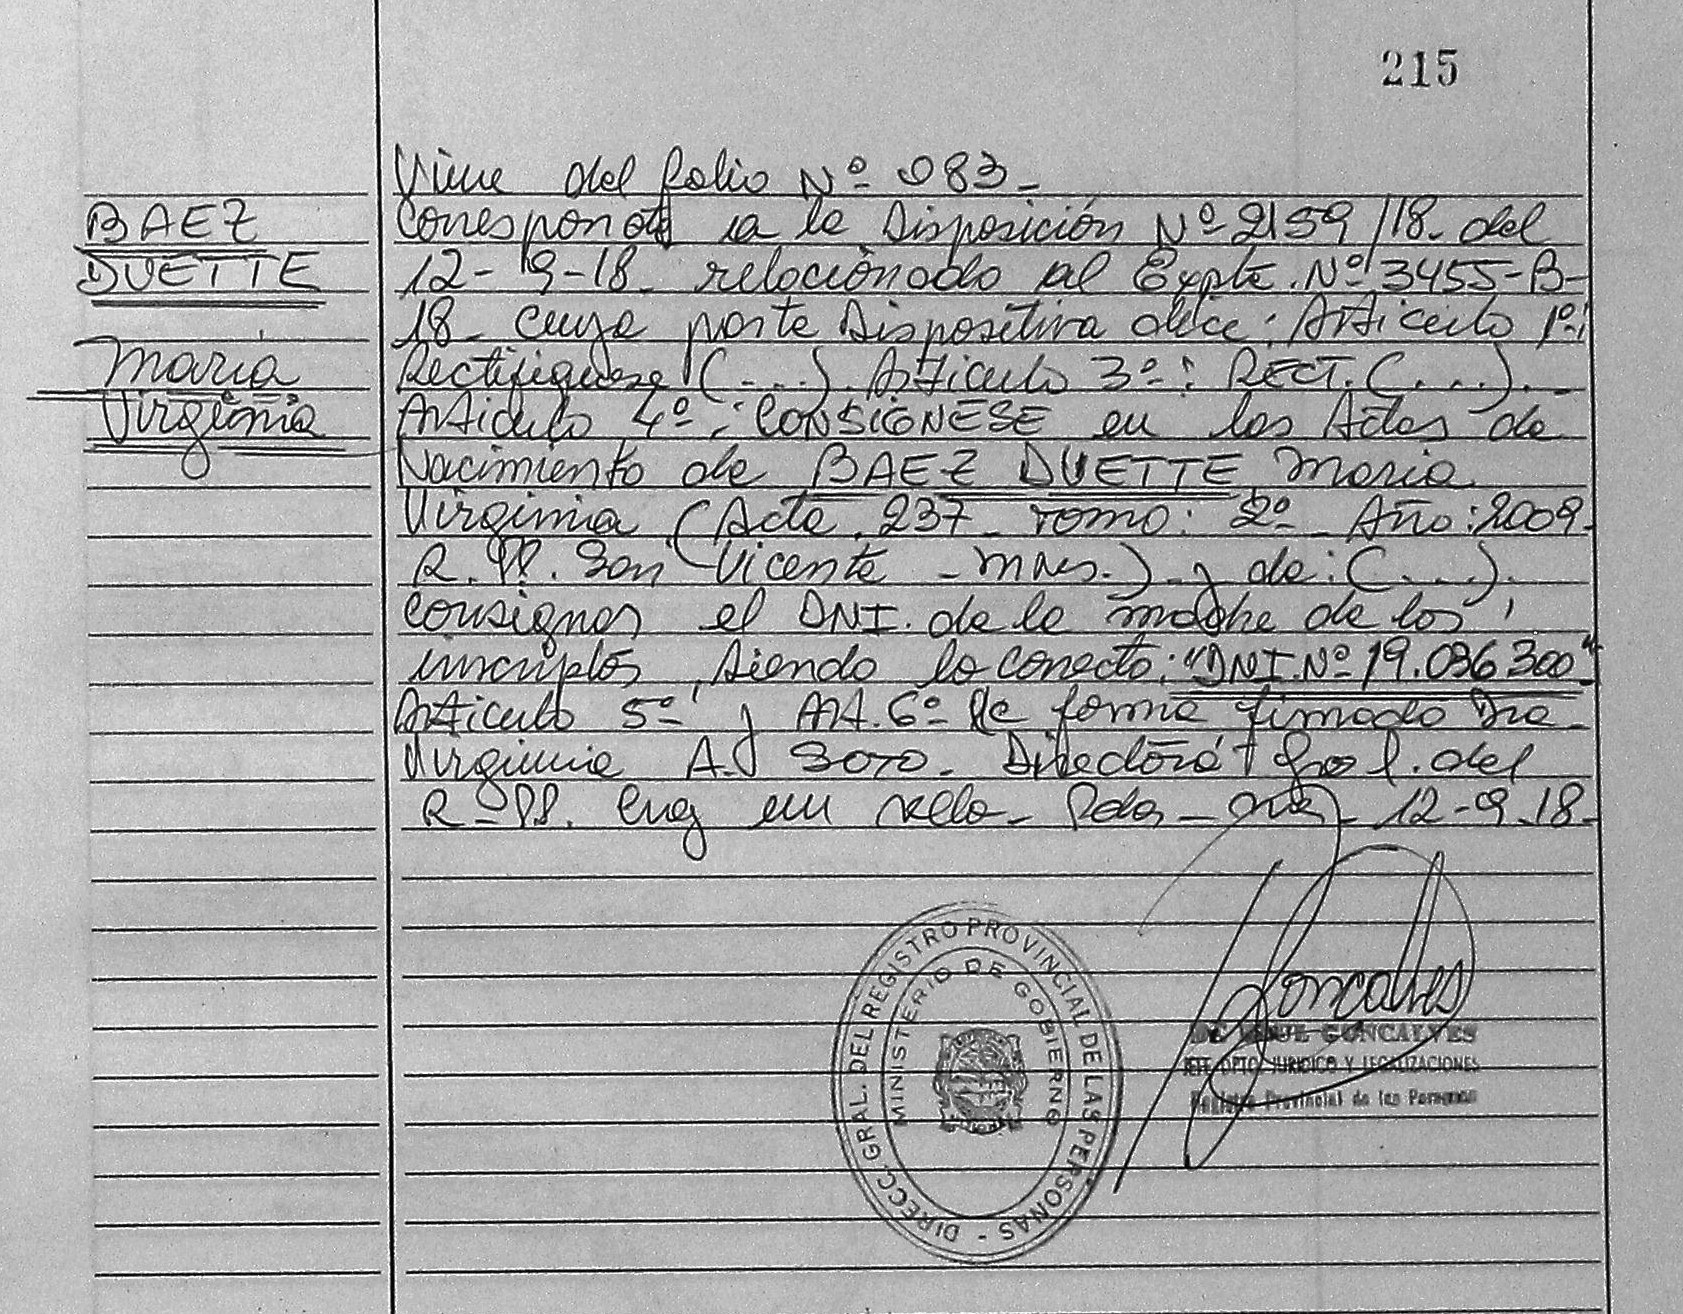 215
Viene del folio Nº 083-
BAEZ
DUETTE
Maria
Virginia
Corresponde a la Disposición Nº 2159/18- del
12-9-18- relacionado al Expte. Nº 3455-B-
18- cuya parte Dispositiva dice: Articulo 1º:
Rectifiquese (....). Articulo 3º: RECT. (....).-
Articulo 4º: CONSIGNESE en las Actas de
Nacimiento de BAEZ DUETTE Maria
Virginia (Acta 237- Tomo: 2º- Año: 2009-
R.PP. San Vicente - Mnes.) y de: (....).
Consignar el DNI. de la madre de los
inscriptos, siendo lo correcto: "DNI.Nº 19.036300"-
Articulo 5º y Art. 6º de forma firmado Dra
Virginia A. Soto. Directora Gral. del
R-PP. en sello- Pdas- 12-9-18-
Goncalves
GONCALVES
JEFE DPTO. JURIDICO Y LEGALIZACIONES
Registro Provincial de las Personas
DIRECC. GRAL. DEL REGISTRO PROVINCIAL DE LAS PERSONAS -
MINISTERIO DE GOBIERNO